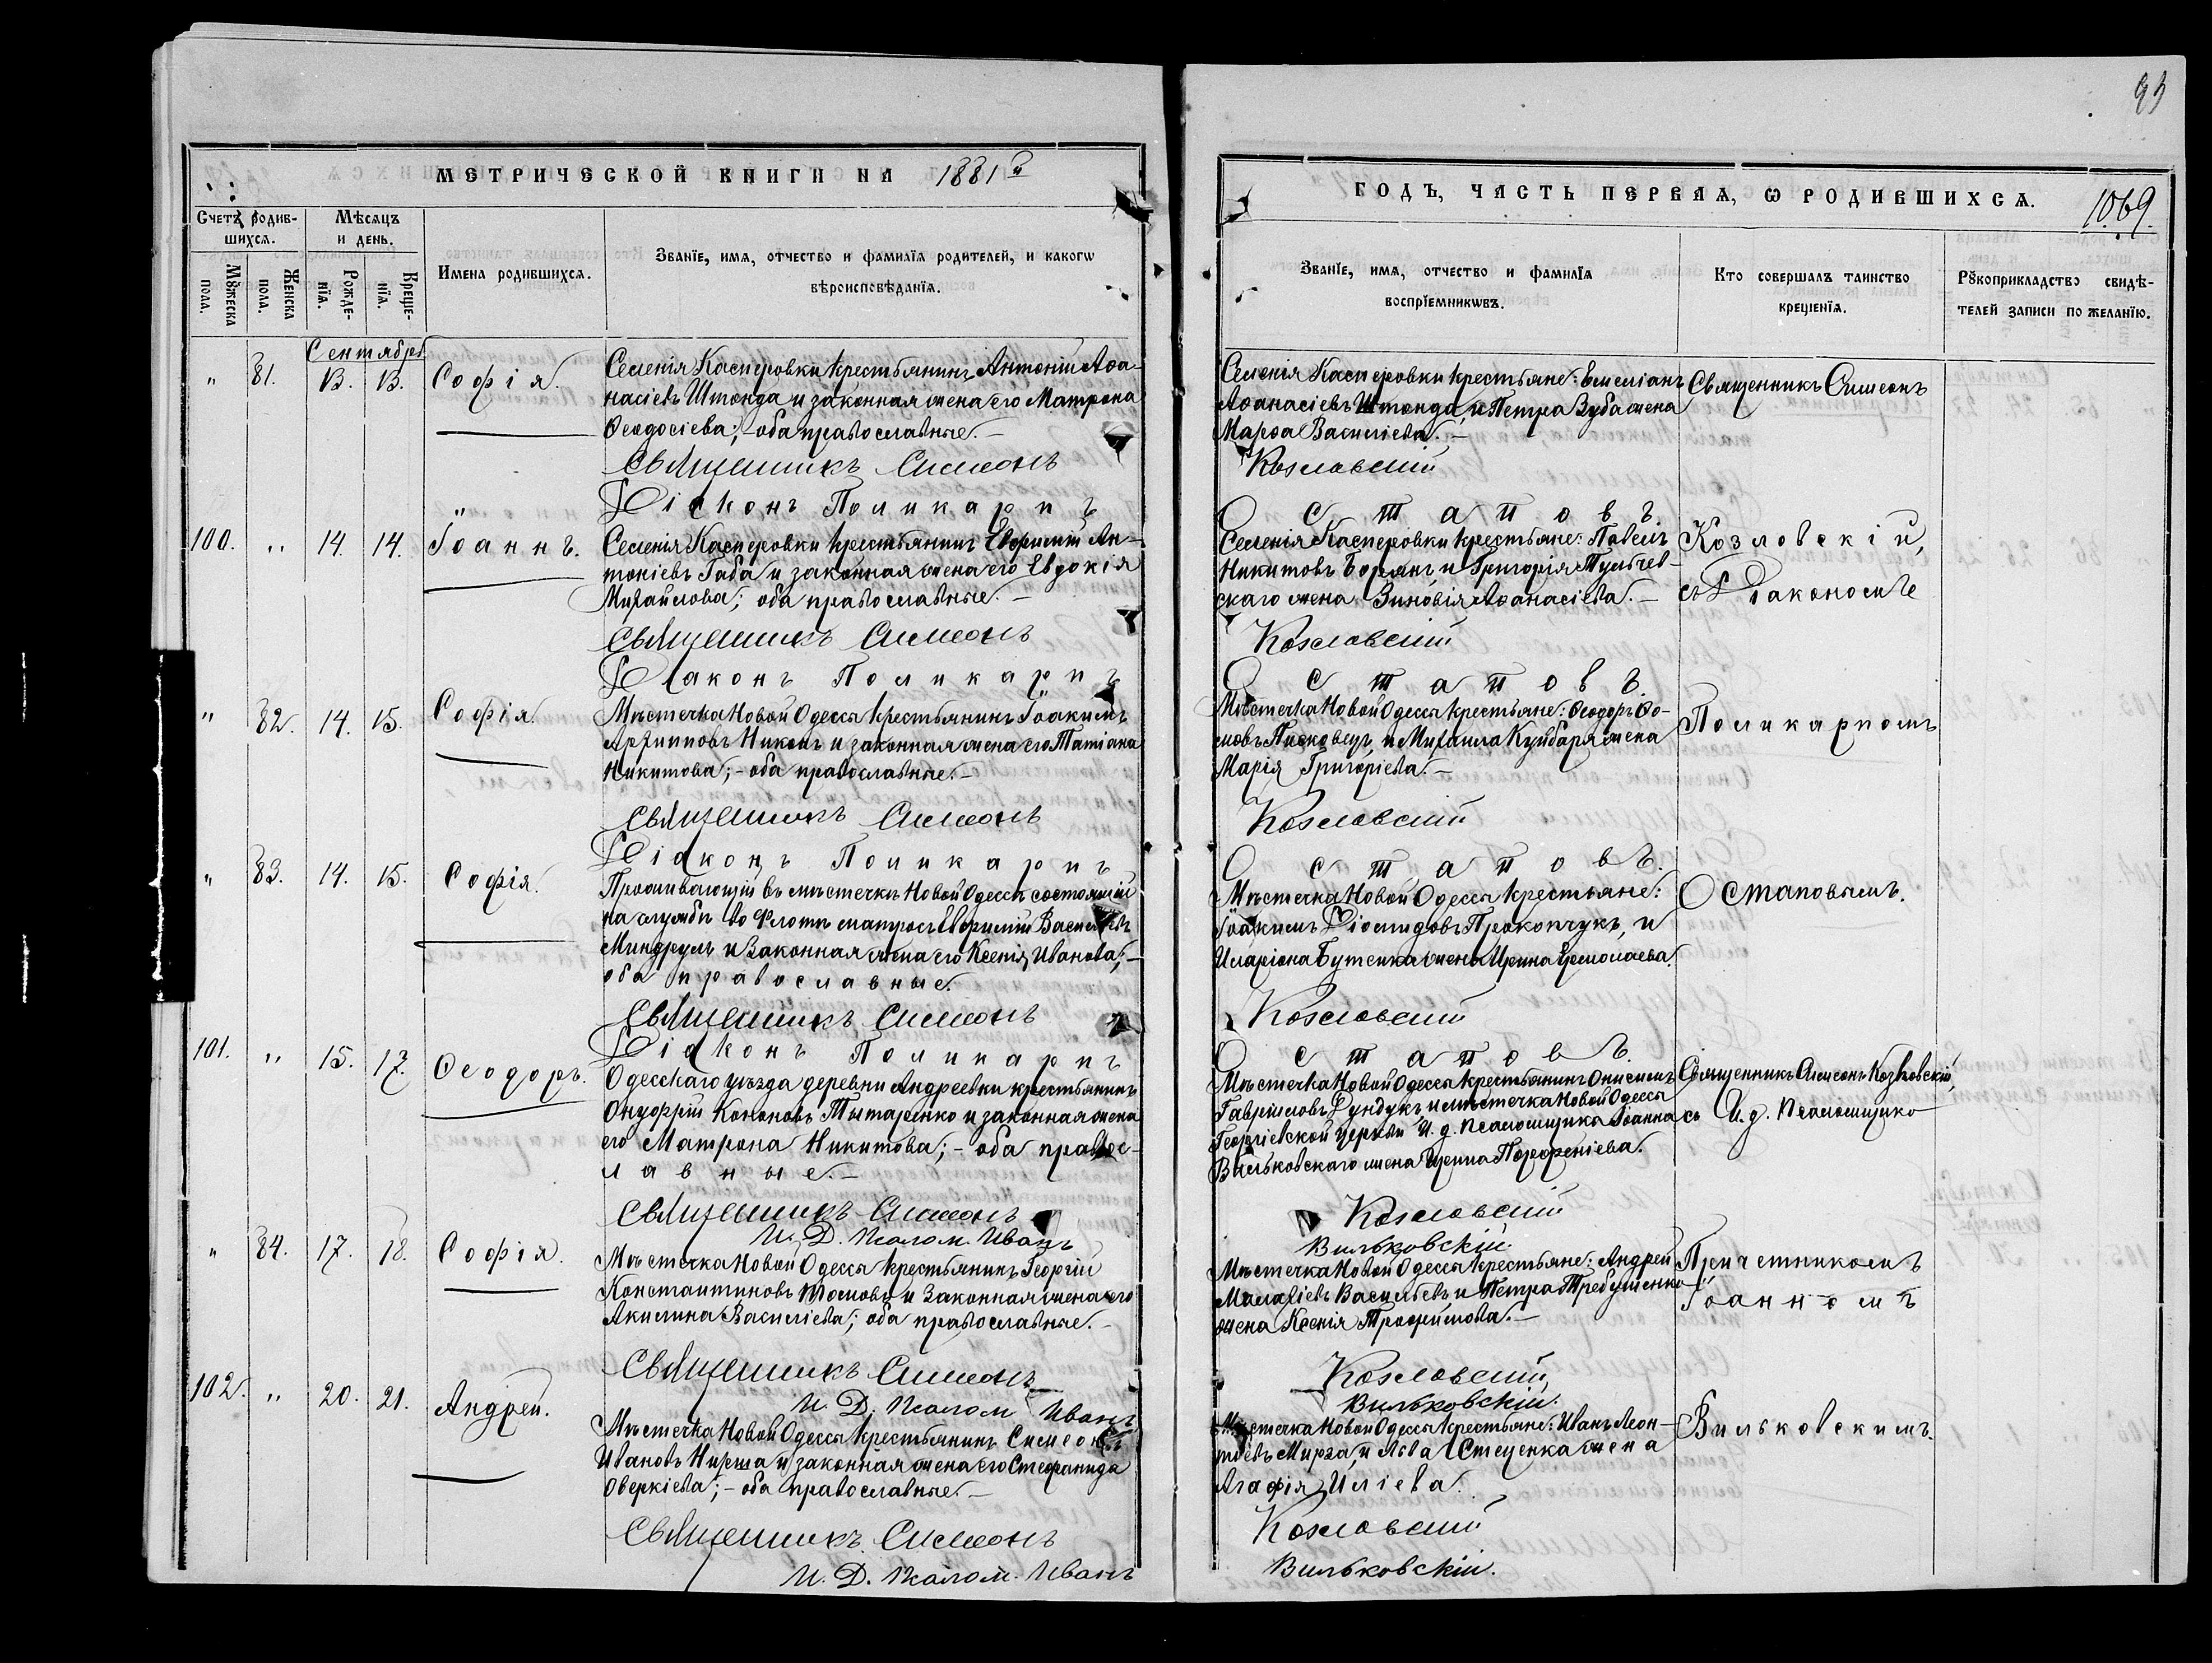 93
МЕТРИЧЕСКОЙ КНИГИ НА 1881 й
ГОДЪ, ЧАСТЬ ПЕРВАЯ, Ѡ РОДИВШИХСЯ.
1069.
Счетъ родив-
шихся.
Мѣсяцъ
и день.
Мꙋжеска
пола.
Женска
пола.
Рожде-
нїя.
Креще-
нїя.
Имена родившихся.
Званїе, имя, отчество и фамилїя родителей, и какогѡ
вѣроисповѣданїя.
Званїе, имя, отчество и фамилїя
воспрїемникѡвъ.
Кто совершалъ таинство
крещенїя.
Рꙋкоприкладство свидѣ-
телей записи по желанїю.
Сентябрь
" 81. 13. 13. Софія.
Селенія Касперовки крестьянинъ Антоній Аѳа-
насіевъ Штонда и законная жена его Матрона
Ѳеодосіева; - оба православные. -
Священникъ Симеонъ
Діаконъ Поликарпъ
Селенія Касперовки крестьяне: Емеліанъ
Аѳанасіевъ Штонда, и Петра Зуба жена
Марѳа Василіева. -
Козловскій
Остаповъ.
Священникъ Симеонъ
100. " 14. 14. Іоаннъ.
Селенія Касперовки крестьянинъ Евфимій Ан-
тоніевъ Габа и законная жена его Евдокія
Михайлова; оба православные. -
Священникъ Симеонъ
Діаконъ Поликарпъ
Селенія Касперовки крестьяне: Павелъ
Никитовъ Борянъ и Григорія Тульчев-
скаго жена Зиновія Аѳанасіева. -
Козловскій
Остаповъ.
Козловскій,
съ Діакономъ
" 82. 14. 15. Софія.
Мѣстечка Новой Одессы крестьянинъ Іоакимъ
Архипповъ Никонъ и законная жена его Татіана
Никитова; - оба православные. -
Священникъ Симеонъ
Діаконъ Поликарпъ
Мѣстечка Новой Одессы крестьяне: Ѳеодоръ Ѳо-
мовъПисковецъ, и Михаила Куйбаря жена
Марія Григоріева. -
Козловскій
Остаповъ.
Поликарпомъ
" 83. 14. 15. Софія.
Проживающій въ мѣстечкѣ Новой Одессѣ состоящій
на службѣ во Флотѣ матросъ Евфимій Васильевъ
Миндрулъ и законная жена его Ксенія Иванова; -
оба православные.
Священникъ Симеонъ
Діаконъ Поликарпъ
Мѣстечка Новой Одессы крестьяне:
Іоакимъ Діомидовъ Прокопчукъ, и
Иларіона Бутенка жена Ирина Ермолаева.
Козловскій
Остаповъ.
Остаповымъ.
101. " 15. 17. Ѳеодоръ.
Одесскаго уѣзда деревни Андреевки крестьянинъ
Онуфрій Кононовъ Тытаренко и законная жена
его Матрона Никитова; - оба правос-
лавные. -
Священникъ Симеонъ
И. Д. Псалом. Иванъ
Мѣстечка Новой Одессы крестьянинъ Онисимъ
Гавріиловъ Дундукъ и мѣстечка Новой Одессы
Георгіевской церкви И. д. псаломщика Іоанна
Вильковскаго жена Ирина Порфеніева.
Козловскій
Вильковскій.
Священникъ Симеонъ Козловскій,
съ И. д. Псаломщико
" 84. 17. 18. Софія.
Мѣстечка Новой Одессы крестьянинъ Георгій
Константиновъ Томовъ и законная жена его
Акилина Василіева; оба православные. -
Священникъ Симеонъ
И. Д. Псалом Иванъ
Мѣстечка Новой Одессы крестьяне: Андрей
Малахіевъ Васильевъ и Петра Требушенко
жена Ксенія Трофимова. -
Козловскій,
Вильковскій.
Причетникомъ
Іоанномъ
102. " 20. 21. Андрей.
Мѣстечка Новой Одессы крестьянинъ Симеонъ
Ивановъ Нирша и законная жена его Стефанида
Оверкіева; - оба православные. -
Священникъ Симеонъ
И. Д. Псалом. Иванъ
Мѣстечка Новой Одессы крестьяне: Иванъ Леон-
тіевъ Мирза, и Льва Стеценка жена
Агафія Иліева.
Козловскій
Вильковскій.
Вильковскимъ.